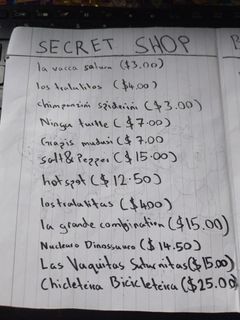 SECRET SHOP
la vacca saturn ($3.00)
los tralalitos ($4.00)
chimpanzini spiderini ($3.00)
Ninga turtle ($7.00)
Grapis mudusi ($7.00
Salt & Pepper ($15.00)
hotspot ($12.50)
lostralalitas ($400)
la grande combination ($15.00)
Nucleuro Dinossauro ($14.50)
Las Vaquitas Saturnitas ($15.00)
Chicleteira Bicicleteira ($25.00